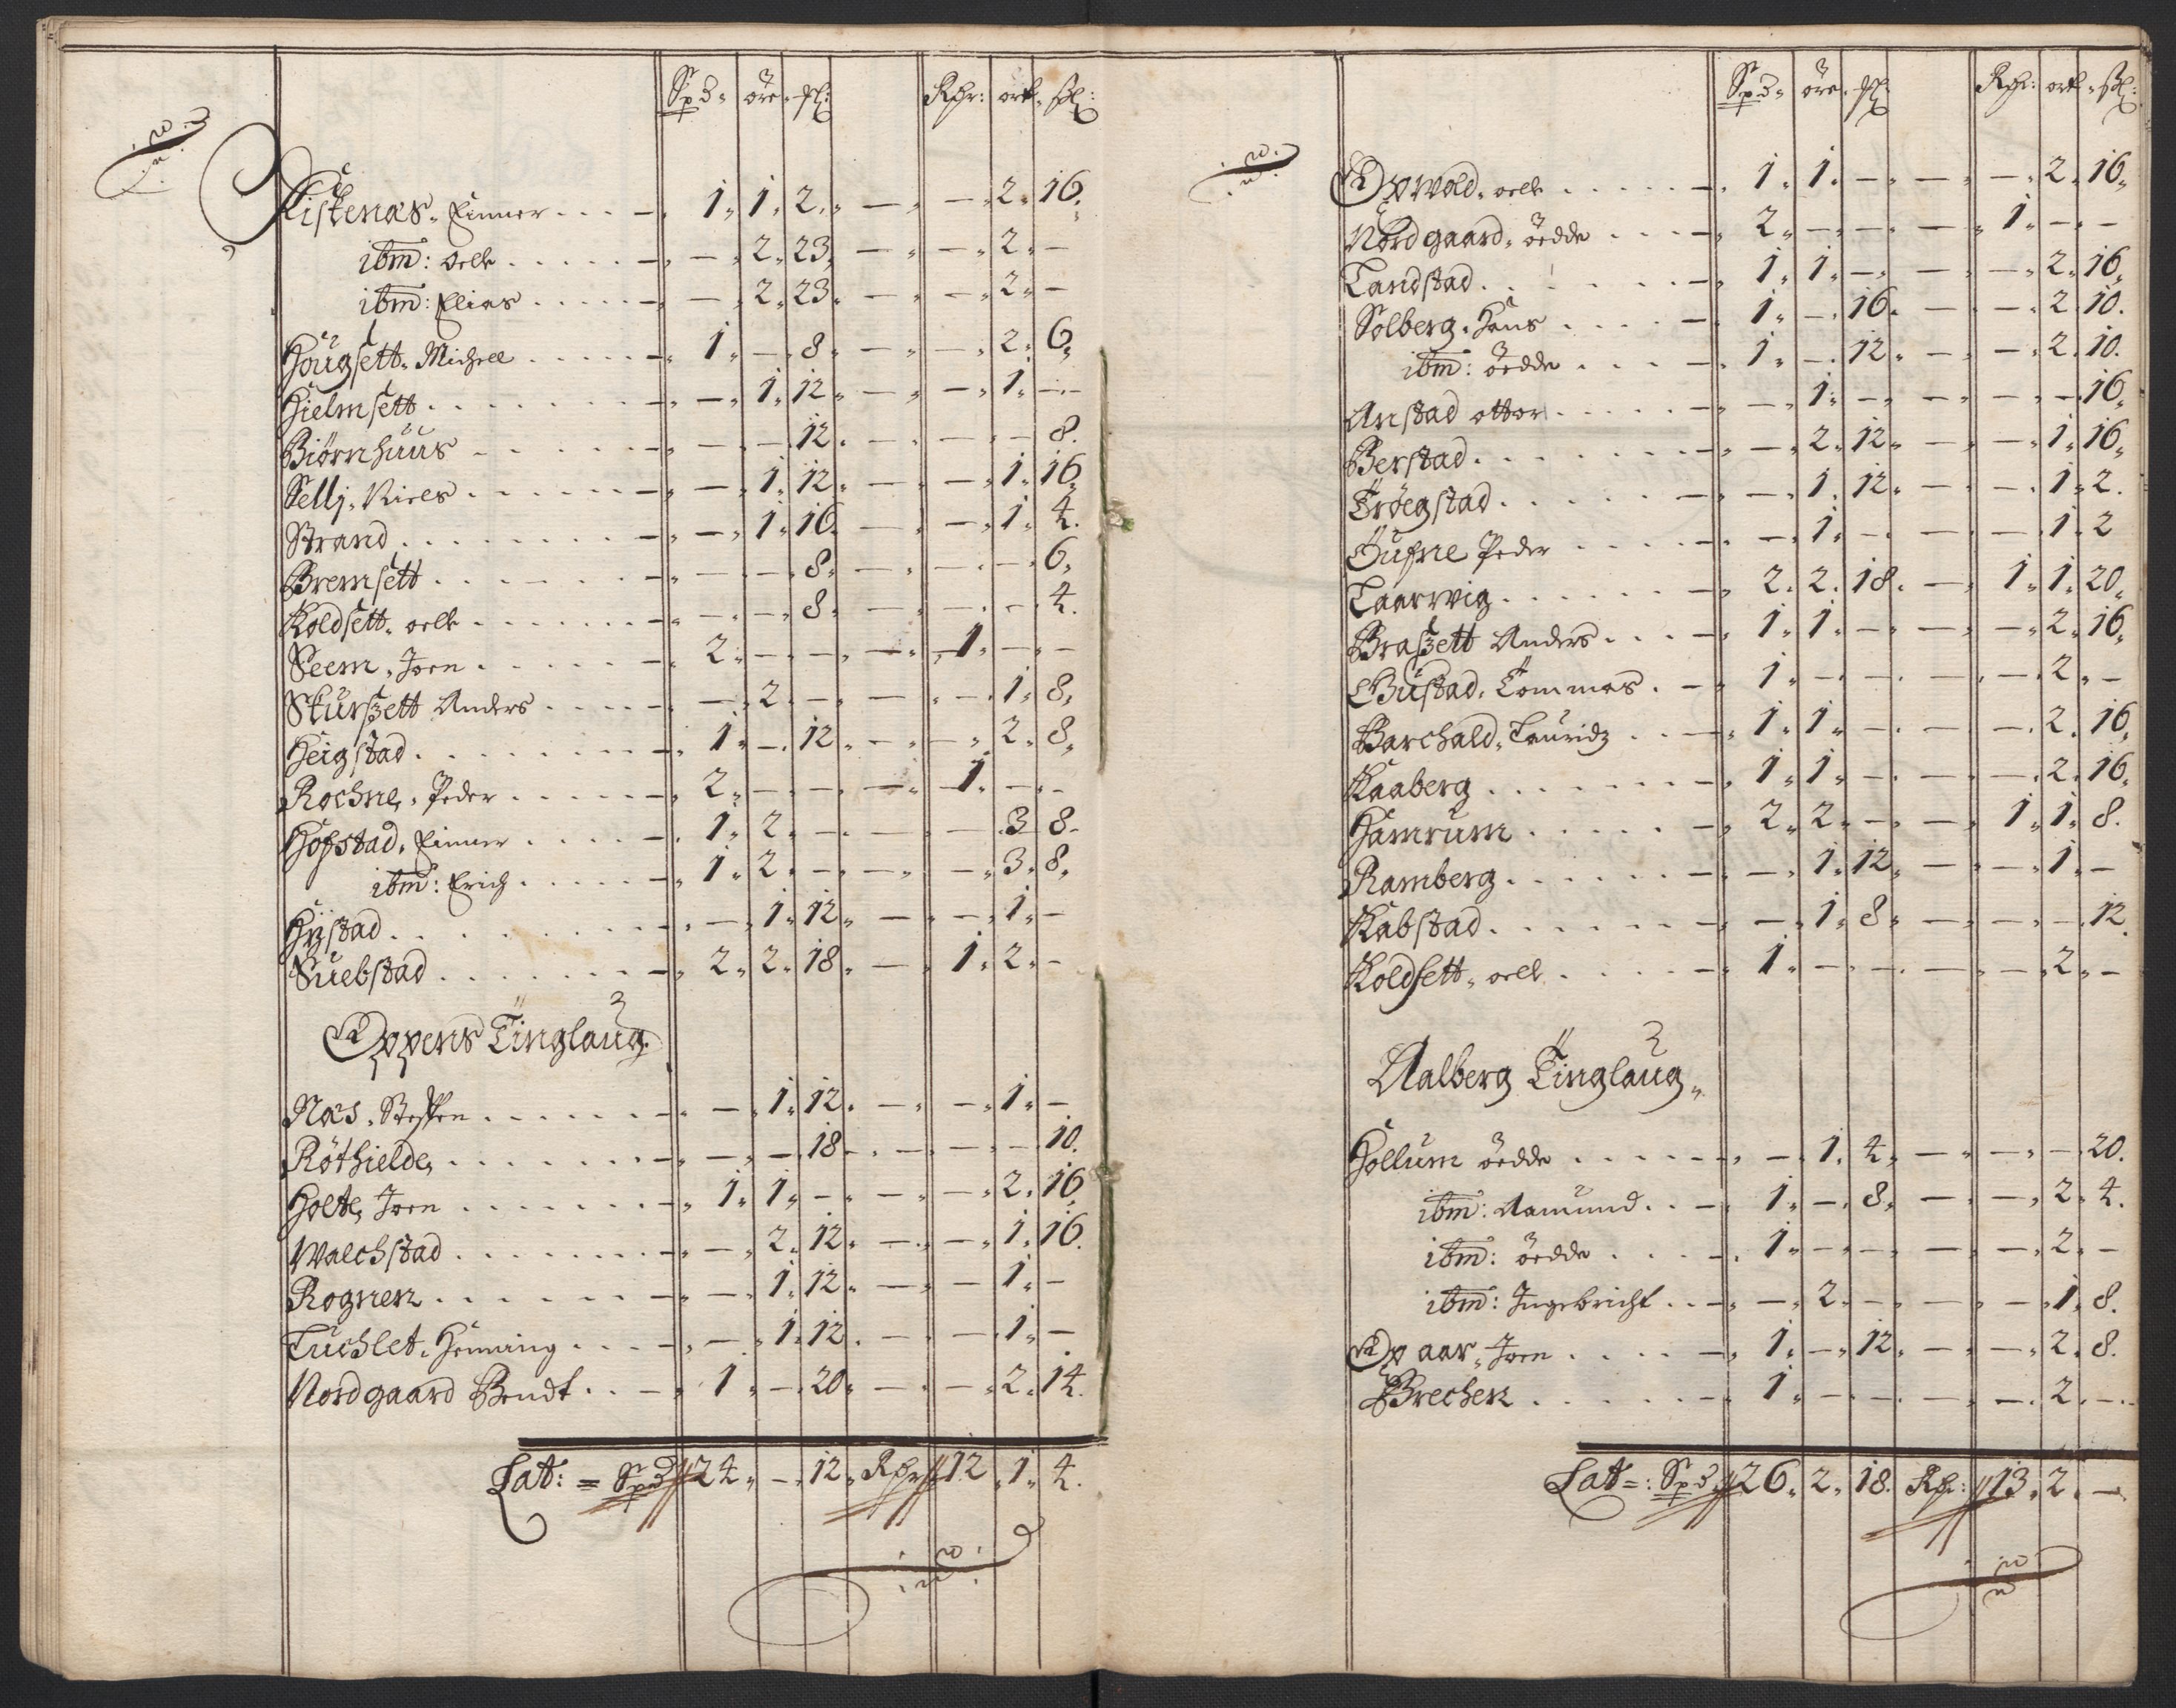 Spd. öre. sl: Rhr: ort. sl:
Kistenæs. Einner . . . - 1. 1. 2. - - 2. 16.
ibm: oell . . . . . - - 2. 23. - - 2. -
ibm: Elias . . . . . - - 2. 23. - - 2. -
Hougsett. Michell . . . . . 1. - 8. - - 2. 6.
Hielmsett . . . . . . - 1. 12. - - 1. -
Biörnhuus . . . . . . - - 12. - - - 8.
Sellj. Niels . . . . . . - 1. 12. - - 1. 16.
Strand . . . . . . . - 1. 16. - - 1. 4.
Bremsett . . . . . . - - 8. - - - 6.
Koldsett. oell . . . . . . - - 8. - - - 4.
Seem. Joen . . . . . 2. - - - 1. - -
Sturszett Anders . . . . - 2. - - - 1. 8.
Heigstad . . . . . . 1. - 12. - - 2. 8.
Rochne. Peder . . . . . 2. - - - 1. - -
Hofstad. Einner . . . . 1. 2. - - - 3 8.
ibm: Erich . . . . . 1. 2. - - - 3. 8.
Hÿstad . . . . . . - 1. 12. - - 1. -
Suebstad . . . . . . 2. 2. 18. - 1. 2. -
Oppens Tinglaug.
Næs. Steffen . . . . . . - 1. 12. - - 1. -
Röthielde . . . . . . - - 18 - - - 10.
Holte, Joen . . . . . . 1. 1. - - - 2. 16.
Walchstad . . . . . . - 2. 12. - - 1. 16.
Rognen . . . . . . - 1. 12. - - 1. -
Tuchlet. Henning . . . . - 1. 12. - - 1. -
Nordgaard Bendt . . - 1. - 20. - - 2. 14.
Lat: = Spd 24. - 12. Rhr 12. 1. 4.
Spd. öre. sl: Rhr: ort. sl:
Opwold. oell . . . . . 1. 1. - - - 2. 16.
Nordgaard. öedde . . . 2. - - - 1. - -
Landstad . . . . . . 1. 1. - - - 2. 16.
Solberg. Hans . . . . 1. - 16. - - 2. 10.
ibm: öedde . . . . 1. - 12. - - 2. 10.
Anstad otter . . . . . - 1. - - - - 16.
Berstad . . . . . . - 2. 12. - - 1. 16.
Tröegstad . . . . . - 1. 12. - - 1. 2.
Hufne Peder . . . . . - 1. - - - 1. 2
Laarwig . . . . . . 2. 2. 18. - 1. 1. 20.
Braszett Anders . . . 1. 1. - - - 2. 16.
Bustad. Tommas . - 1. - - - - 2. -
Barchald. Lauridz . . - 1. 1. - - - 2. 16.
Kaaberg . . . . . . 1. 1. - - - 2. 16.
Hamrum . . . . . 2. 2. - - 1. 1. 8.
Ramberg . . . . . . - 1. 12. - - 1. -
Kabstad . . . . . . - 1. 8. - - - 12.
Koldsett. oell . . . . 1. - - - - 2. -
Aalberg Tinglaug.
Hollum öedde . . . . . - 1. 4. - - - 20.
ibm: Aamund . . - 1. - 8. - - 2. 4.
ibm: öedde . . . . 1. - - - - 2. -
ibm: Ingebricht . . - - 2. - - - 1. 8.
Op aar. Joen . . . . 1. - 12. - - 2. 8.
Brechen . . . . . 1. - - - - 2. -
Lat =: Spd. 26. 2. 18. Rhr: 13. 2. -